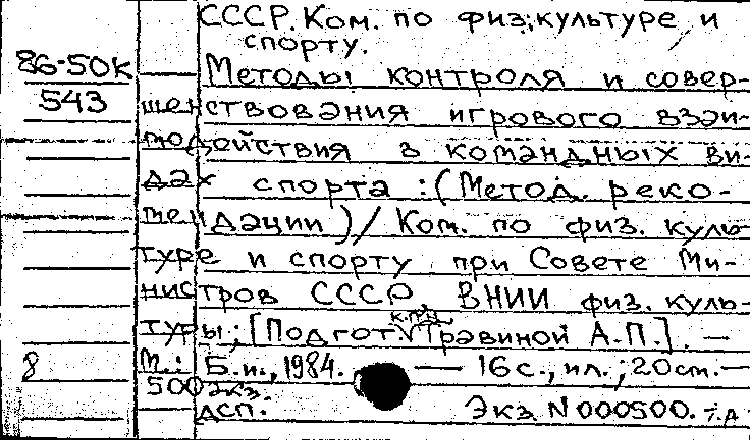 СССР. Ком. по физ. культуре и
спорту.
86-50к
543
Методы контроля и совер-
шенствования игрового взаи-
модействия в командных ви-
дах спорта : (Метод. реко-
мендации) / Ком. по физ. куль-
туре и спорту при Совете Ми-
нистров СССР, ВНИИ физ. куль-
туры; [Подгот. к.п.н. Травиной А.П.]. —
8
М.: Б.и., 1984. — 16 с., ил.; 20 см. —
500 экз.
ДСП. Экз N 000500.